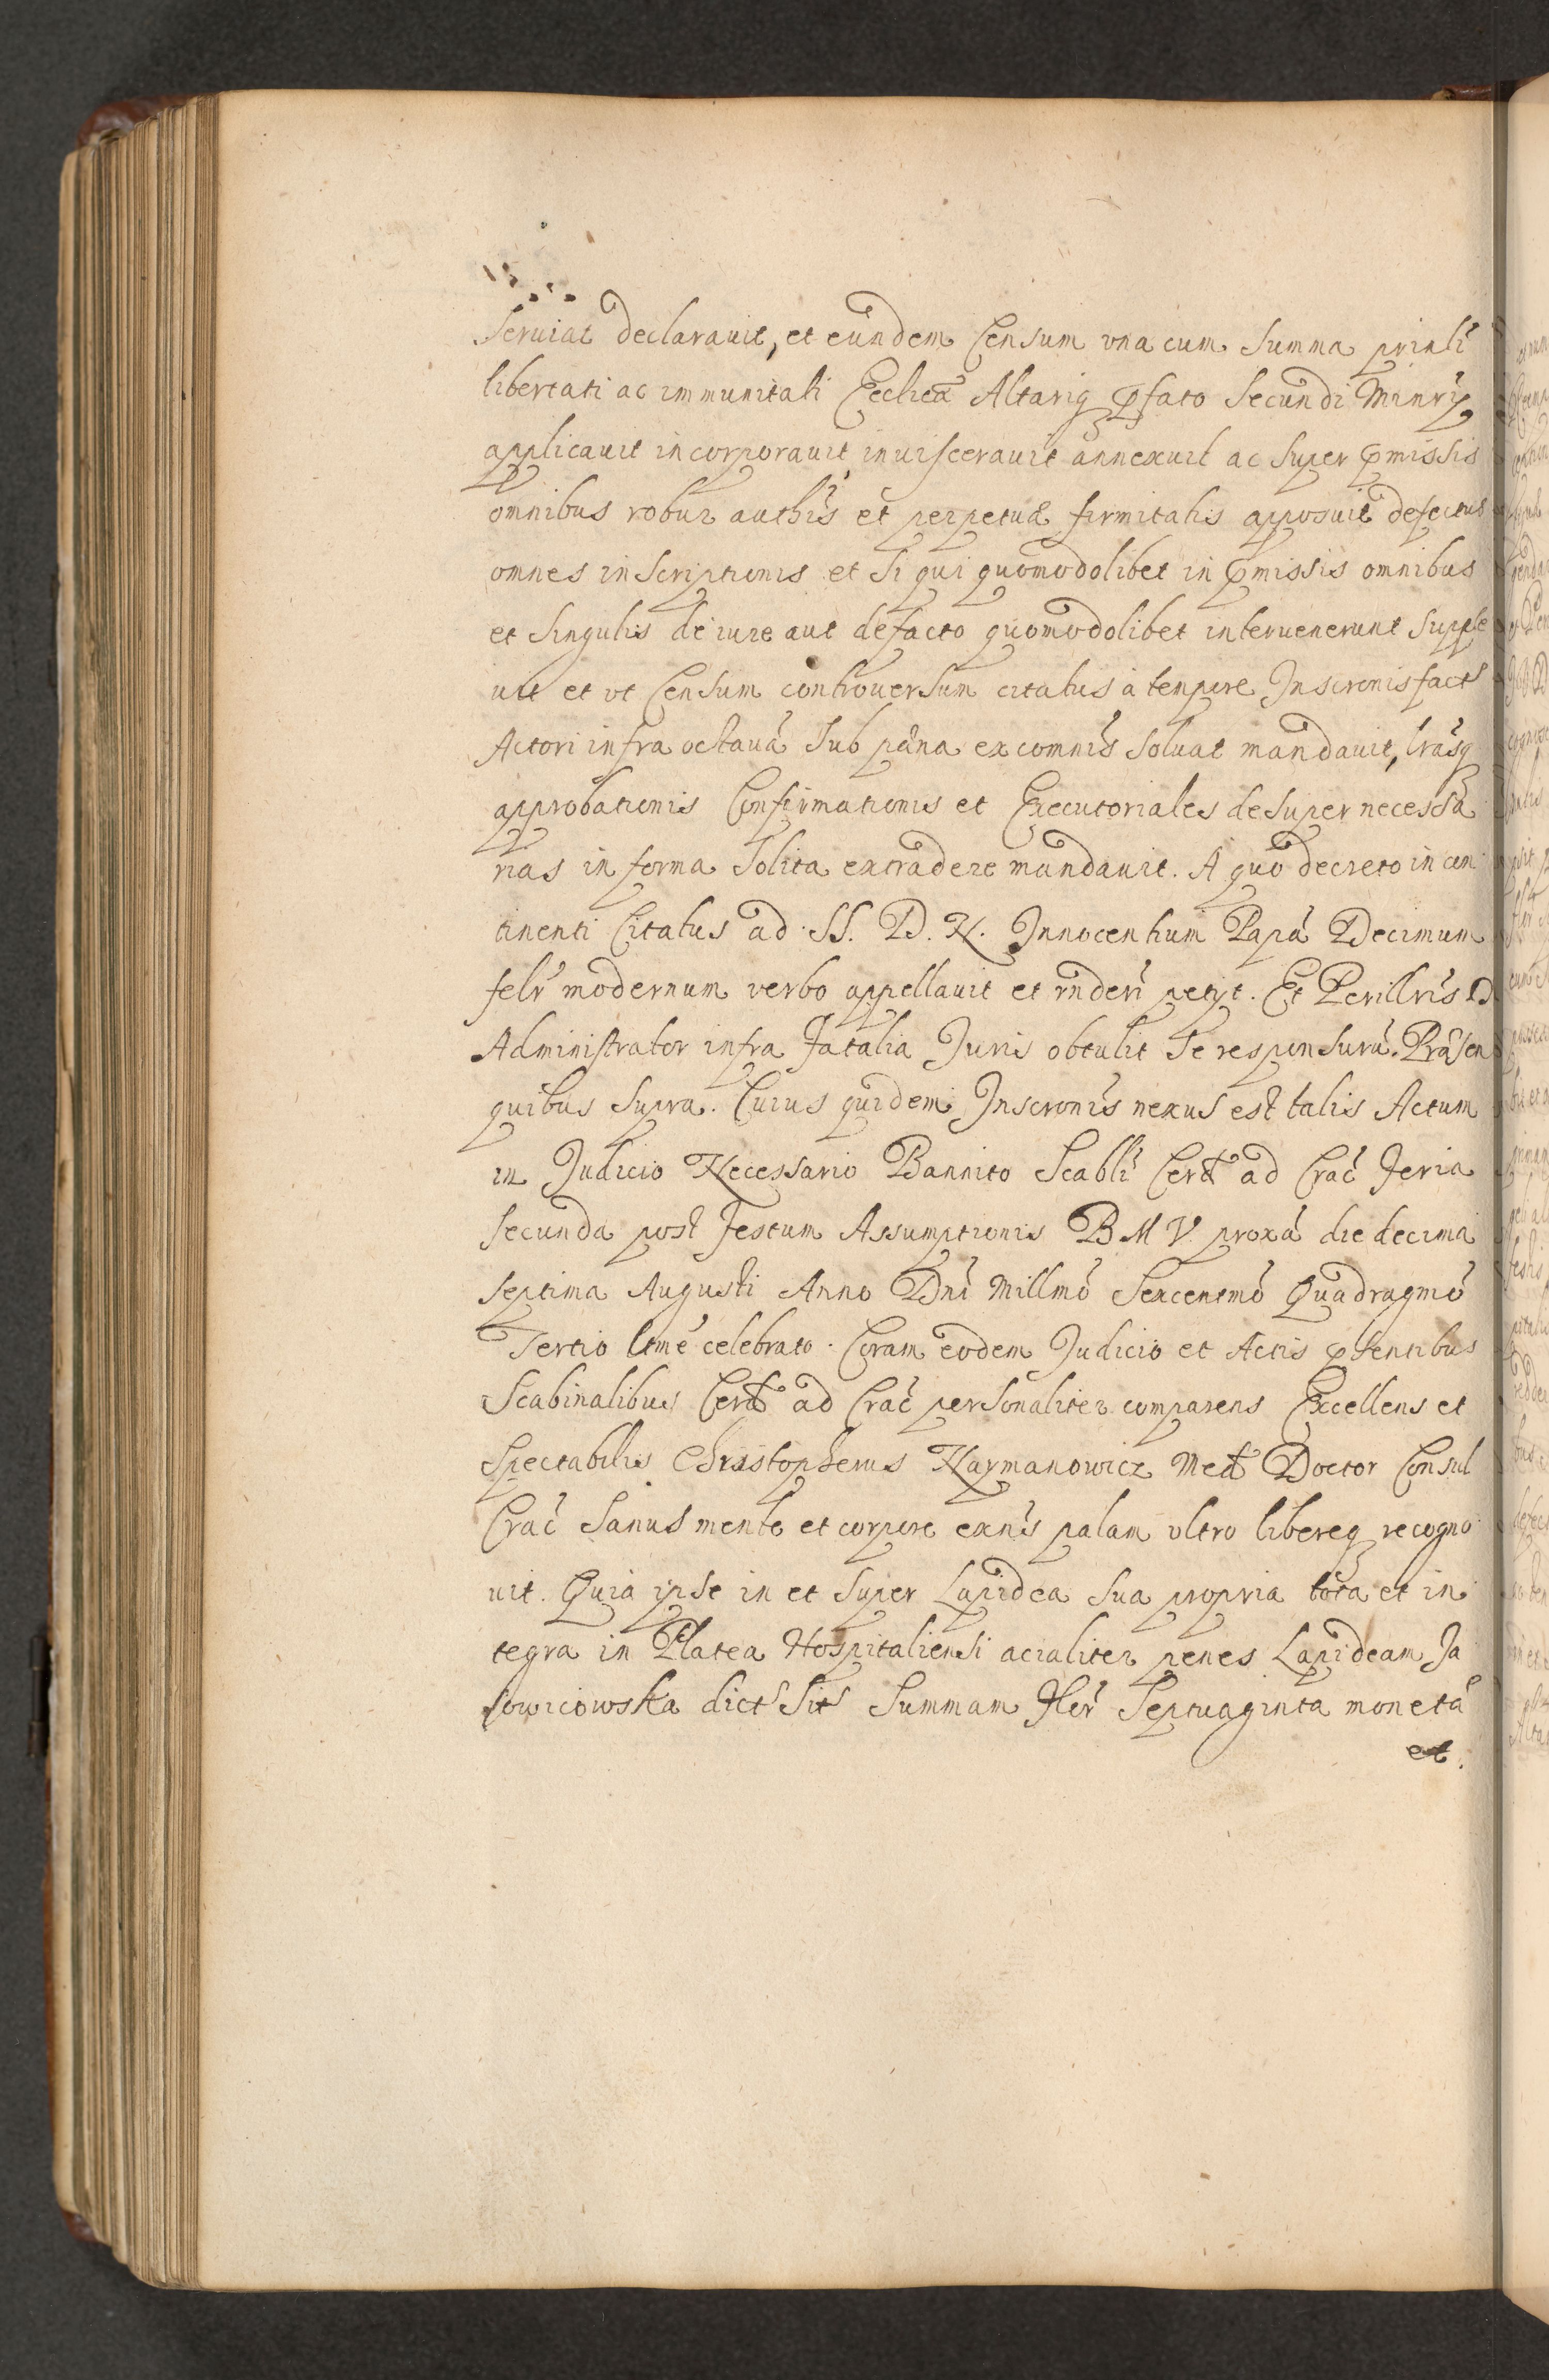 seruiat declarauit, et eundem Censum vna cum summa prinli
libertati ac immunitati Eccliēa Altariq pfato Secundi Minrÿ
applicauit incorporauit inuiscerauit annexuit ac super pmissis
omnibus robur authis et perpetuæ firmitatis apposuit defectus
omnes inscriptionis et si qui quomodolibet in pmissis omnibus
et singulis de iure aut defacto quomodolibet interuenerunt supple
uit et vt Censum controuersum citatus à tempore Inscronis fact
Actori infra octauā sub pæna excomnis soluat mandauit, lrāsq
approbationis Confirmationis et Executoriales desuper necessa
rias in forma solita extradere mandauit. A quo decreto in con
tinenti Citatus ad SS. D. N. Innocentium Papā Decimum
felr modernum verbo appellauit et rnderi petÿt. Et Perillris D
Administrator infra Fatalia Juris obtulit se responsurū. Præsen
quibus supra. Cuius quidem Inscronis nexus est talis Actum
in Judicio Necessario Bannito Scabli Cerd ad Crac Feria
secunda post Festum Assumptionis B M V proxā die decima
septima Augusti Anno Dni Millmo Sexcentmo Quadragmo
Tertio ltme celebrato. Coram eodem Judicio et Actis psentibus
Scabinalibus Cerd ad Crac personaliter comparens Excellens et
Spectabilis Christopherus Naymanowicz Med Doctor Consul
Crac sanus mente et corpore exnis palam vltro libereq recogno
uit. Quia ipse in et super Lapidea sua propria tota et in
tegra in Platea Hospitaliensi acialiter penes Lapideam Ja
sowicowska dict sit Summam Flor Septuaginta monetæ
et.